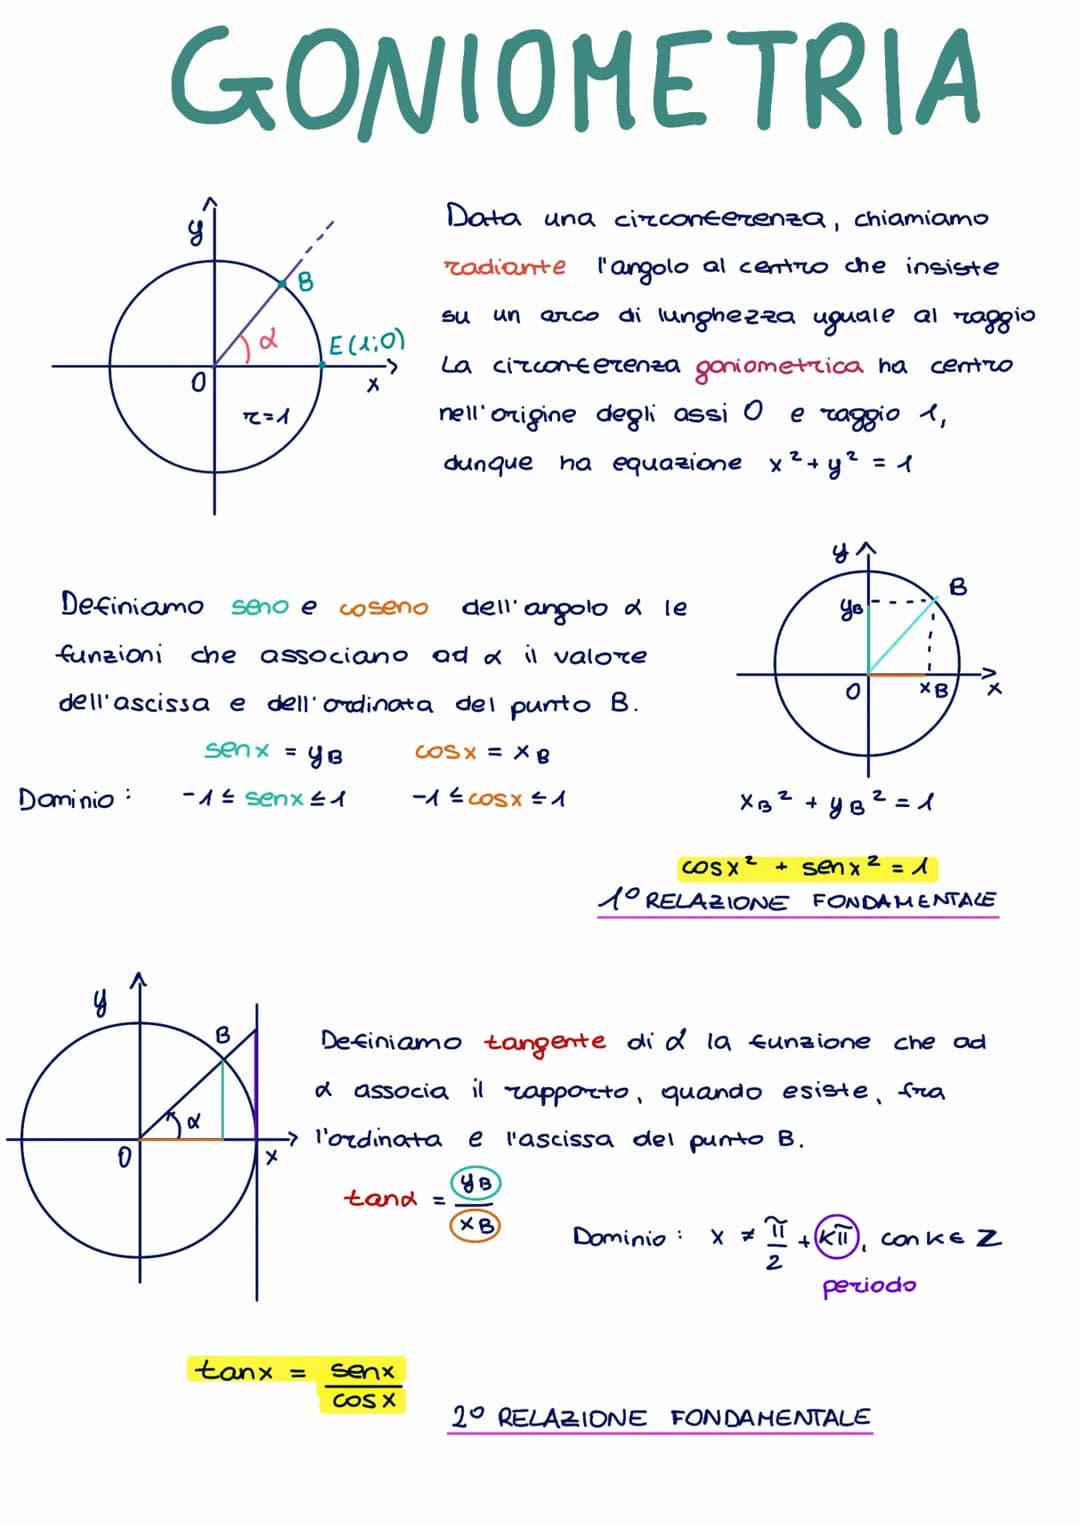 GONIOMETRIA
y
B
α
E(1;0)
O
x
r=1
Data una circonferenza, chiamiamo
radiante l'angolo al centro che insiste
su un arco di lunghezza uguale al raggio
La circonferenza goniometrica ha centro
nell'origine degli assi O e raggio 1,
dunque ha equazione x² + y² = 1
Definiamo seno e coseno dell'angolo α le
funzioni che associano ad α il valore
dell'ascissa e dell'ordinata del punto B.
senx = yB cosx = xB
Dominio: -1 ≤ senx ≤ 1 -1 ≤ cosx ≤ 1
y
B
yB
O
xB
x
xB² + yB² = 1
cosx² + senx² = 1
1° RELAZIONE FONDAMENTALE
y
B
α
O
x
Definiamo tangente di α la funzione che ad
α associa il rapporto, quando esiste, fra
l'ordinata e l'ascissa del punto B.
tanα = yB/xB
Dominio: x ≠ π/2 + kπ, con k ∈ Z
periodo
tanx = senx/cosx
2° RELAZIONE FONDAMENTALE